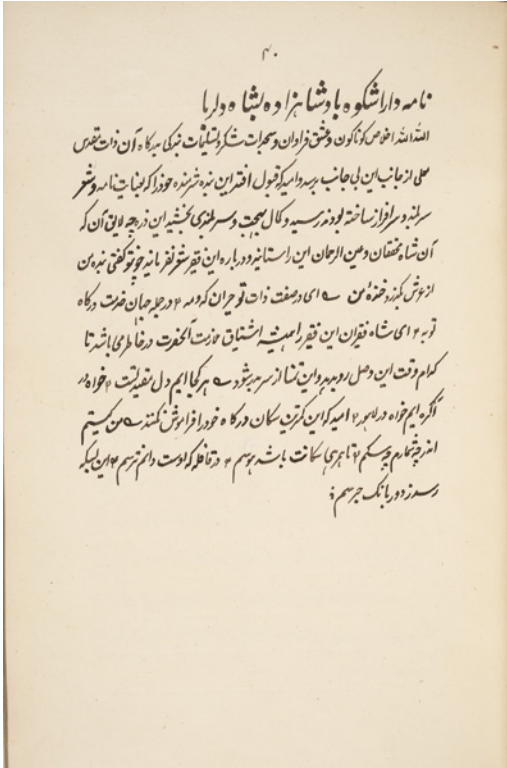 ۴۰
نامه داراشکوه بادشاهزاده بشاه دلربا
الله الله اخلاص گوناگون و عشق فراوان و سجدات شکر و تسلیمات نیرکی بدرگاه آن ذات مقدس
معلی از جانب این بی جانب برسد و امید که قبول افتد این بنده شرمنده خود را که بعنایت نامه و شعر
سربلند و سرافراز ساخته بودند رسید و کمال بهجت و سربلندی بخشید این ذره چه لایق آن که
آن شاه محققان و عین الرحمان این را ستانید و درباره این فقیر شعر نفرمایند چو تو گفتی بنده من
از عرش بگذرد خنده من ای در صفت ذات تو حیران که و مه در جمله جهان خدمت درگاه
تو به ای شاه فقیران این فقیر را همیشه اشتیاق ملازمت آنحضرت در خاطر می باشد تا
کدام وقت این وصل رو بدهد و این تمنا از سر بدر شود هر کجا ایم دل مقید تست خواه در
آگره ایم خواه در لاهور امید که این کمترین سگان درگاه خود را فراموش نکنند من کیستم
اندر چه شمارم چه کسم تا همرهی سگانت باشد هوسم در قافله که اوست دانم نرسم این بسکه
رسد ز دور بانگ جرسم